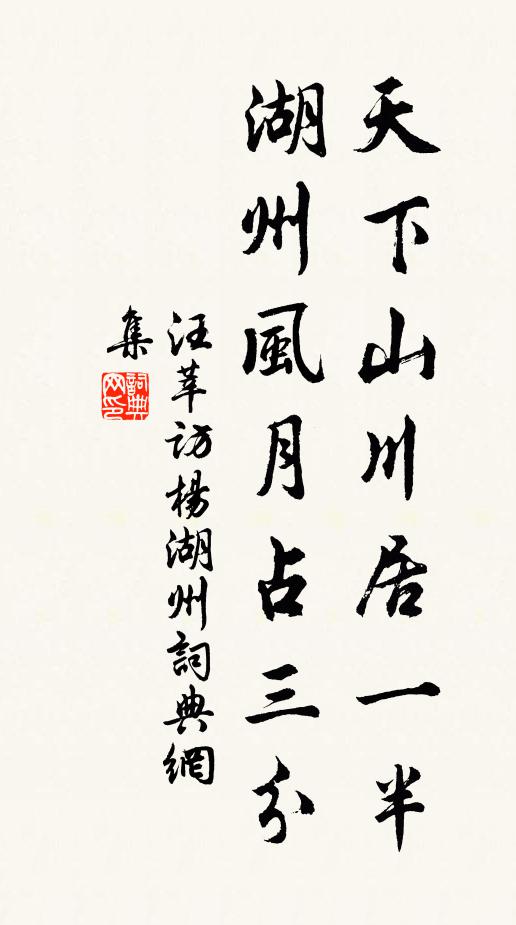 天下山川居一半
湖州風月占三分
汪莘訪楊湖州詞典網
集
詞典
网印